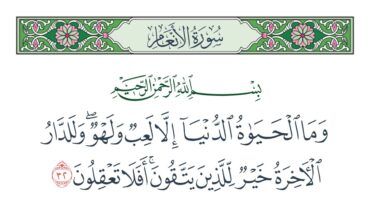 سُورَةُ الأَنْعَامِ
بِسْمِ اللَّهِ الرَّحْمَٰنِ الرَّحِيمِ
وَمَا الْحَيَوٰةُ الدُّنْيَآ إِلَّا لَعِبٌ وَلَهْوٌ ۖ وَلَلدَّارُ
الْأَخِرَةُ خَيْرٌ لِّلَّذِينَ يَتَّقُونَ ۚ أَفَلَا تَعْقِلُونَ ٣٢